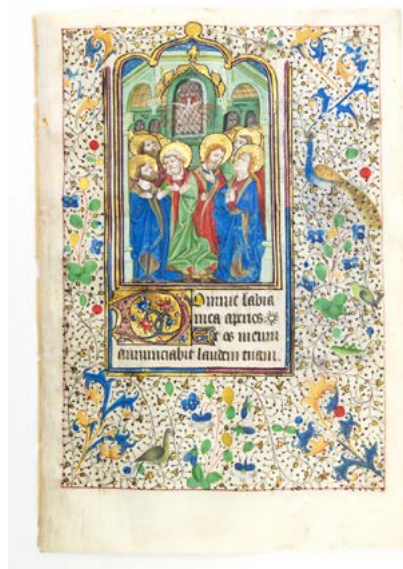 Domine labia
mea aperies.
Et os meum
annunciabit laudem tuam.